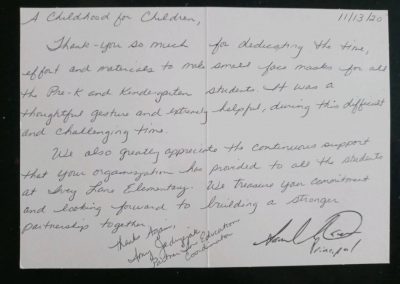 A Childhood for Children,
11/13/20
Thank-you so much for dedicating the time,
effort and materials to make small face masks for all
the Pre-K and Kindergarten students. It was a
thoughtful gesture and extremely helpful, during this difficult
and challenging time.
We also greatly appreciate the continuous support
that your organization has provided to all the students
at Ivey Lane Elementary. We treasure your commitment
and looking forward to building a stronger
partnership together.
Thanks Again,
Amy
Partner in Education
Coordinator
Principal